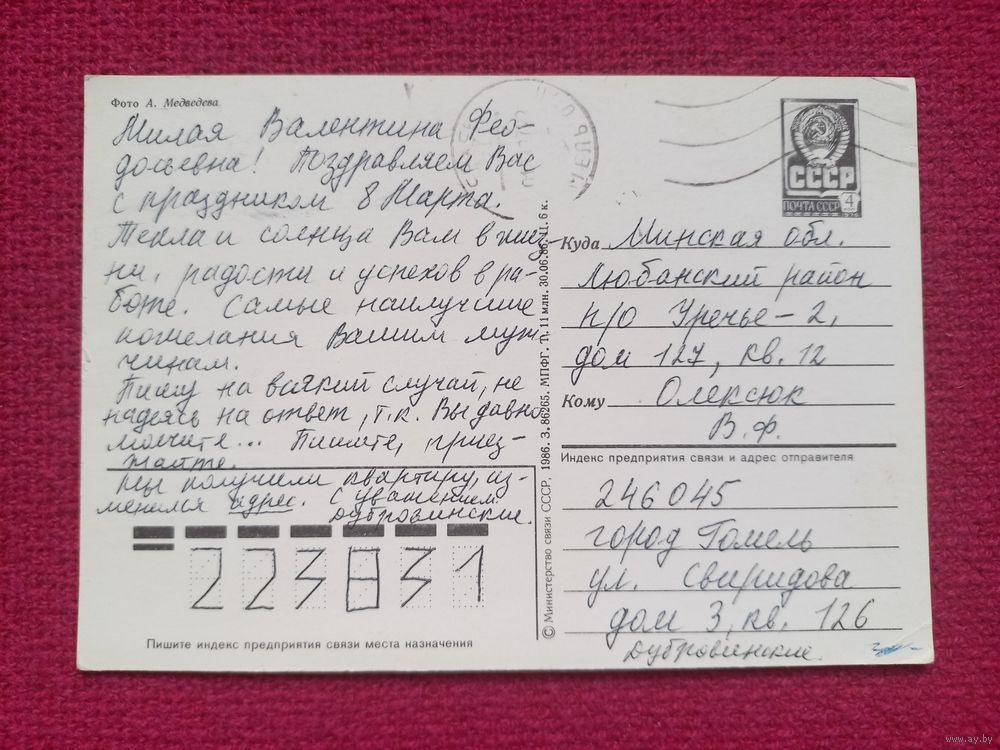 Фото А. Медведева
Милая Валентина Фео-
досьевна! Поздравляем Вас
с праздником 8 Марта.
Тепла и солнца Вам в жиз-
ни, радости и успехов в ра-
боте. Самые наилучшие
пожелания Вашим муж-
чинам.
Пишу на всякий случай, не
надеясь на ответ, т.к. Вы давно
молчите... Пишите, приез-
жайте.
Мы получили квартиру, из-
менился адрес. С уважением
Дубровинские.
223831
Пишите индекс предприятия связи места назначения
© Министерство связи СССР, 1986. З. 86265. МПФГ. Т. 11 млн. 30.06.86. Ц. 6 к.
СССР
ПОЧТА СССР 4
1976
Куда Минская обл.
Любанский район
п/о Уречье-2,
дом 127, кв. 12
Кому Олексюк
В.Ф.
Индекс предприятия связи и адрес отправителя
246045
город Гомель
ул. Свиридова
дом 3, кв. 126
Дубровинские.
www.ay.by